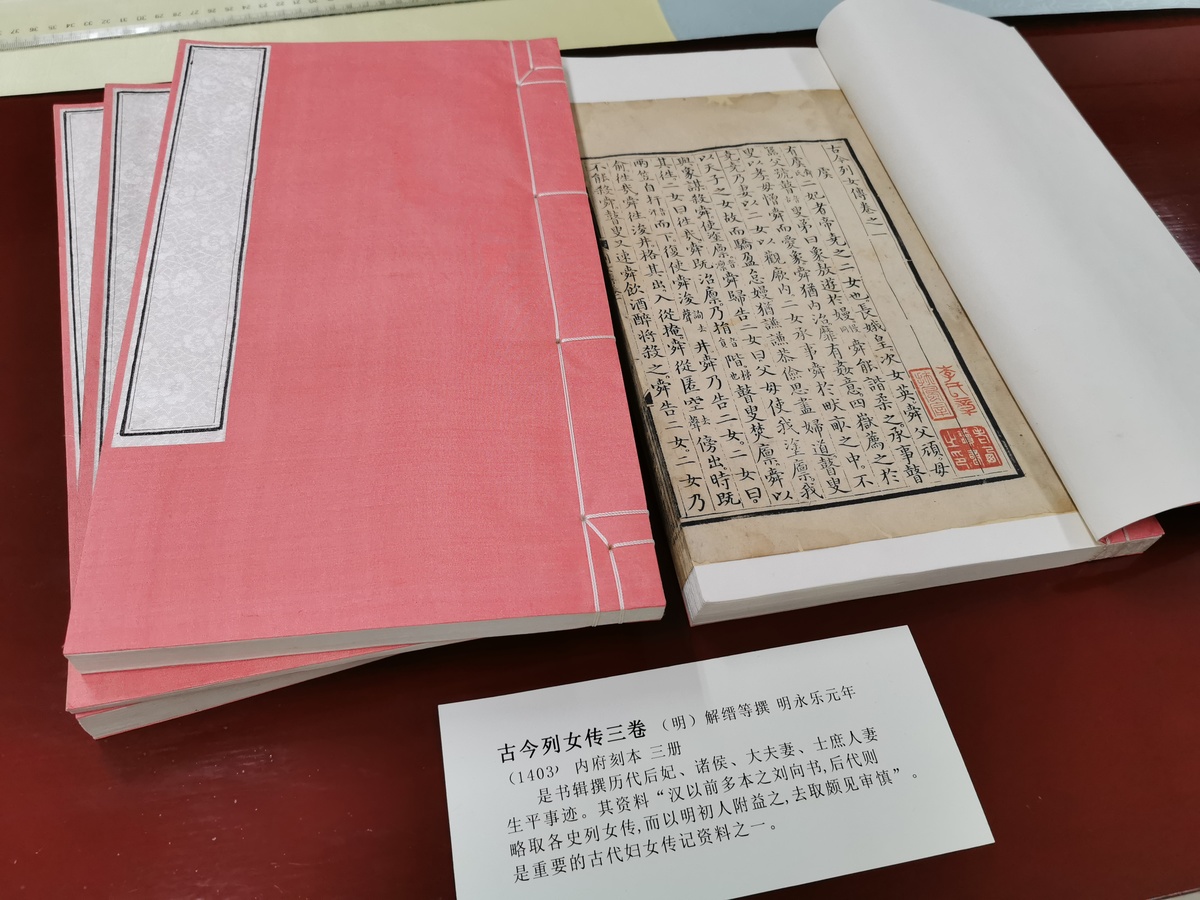 古今列女傳卷之一
虞
有虞二妃者帝堯之二女也長娥皇次女英舜父頑母
嚚父號瞽叟弟曰象敖遊於嫚舜能諧柔之承事瞽
叟以孝母憎舜而愛象舜猶内治靡有姦意四嶽薦之於
堯堯乃妻以二女以觀厥内二女承事舜於畎畝之中不
以天子之女故而驕盈怠嫚猶謙謙恭儉思盡婦道瞽叟
與象謀殺舜使塗廩舜歸告二女曰父母使我塗廩我
其往二女曰往哉舜既治廩乃捐階瞽叟焚廩舜以
兩笠自扞而下復使舜浚井舜乃告二女二女曰
俞往哉舜往浚井格其出入從掩舜從匿空傍出時既
不能殺舜瞽叟又速舜飲酒醉將殺之舜告二女二女乃
古今列女传三卷 （明）解缙等撰 明永乐元年
（1403） 内府刻本 三册
是书辑撰历代后妃、诸侯、大夫妻、士庶人妻
生平事迹。其资料“汉以前多本之刘向书,后代则
略取各史列女传,而以明初人附益之,去取颇见审慎”。
是重要的古代妇女传记资料之一。